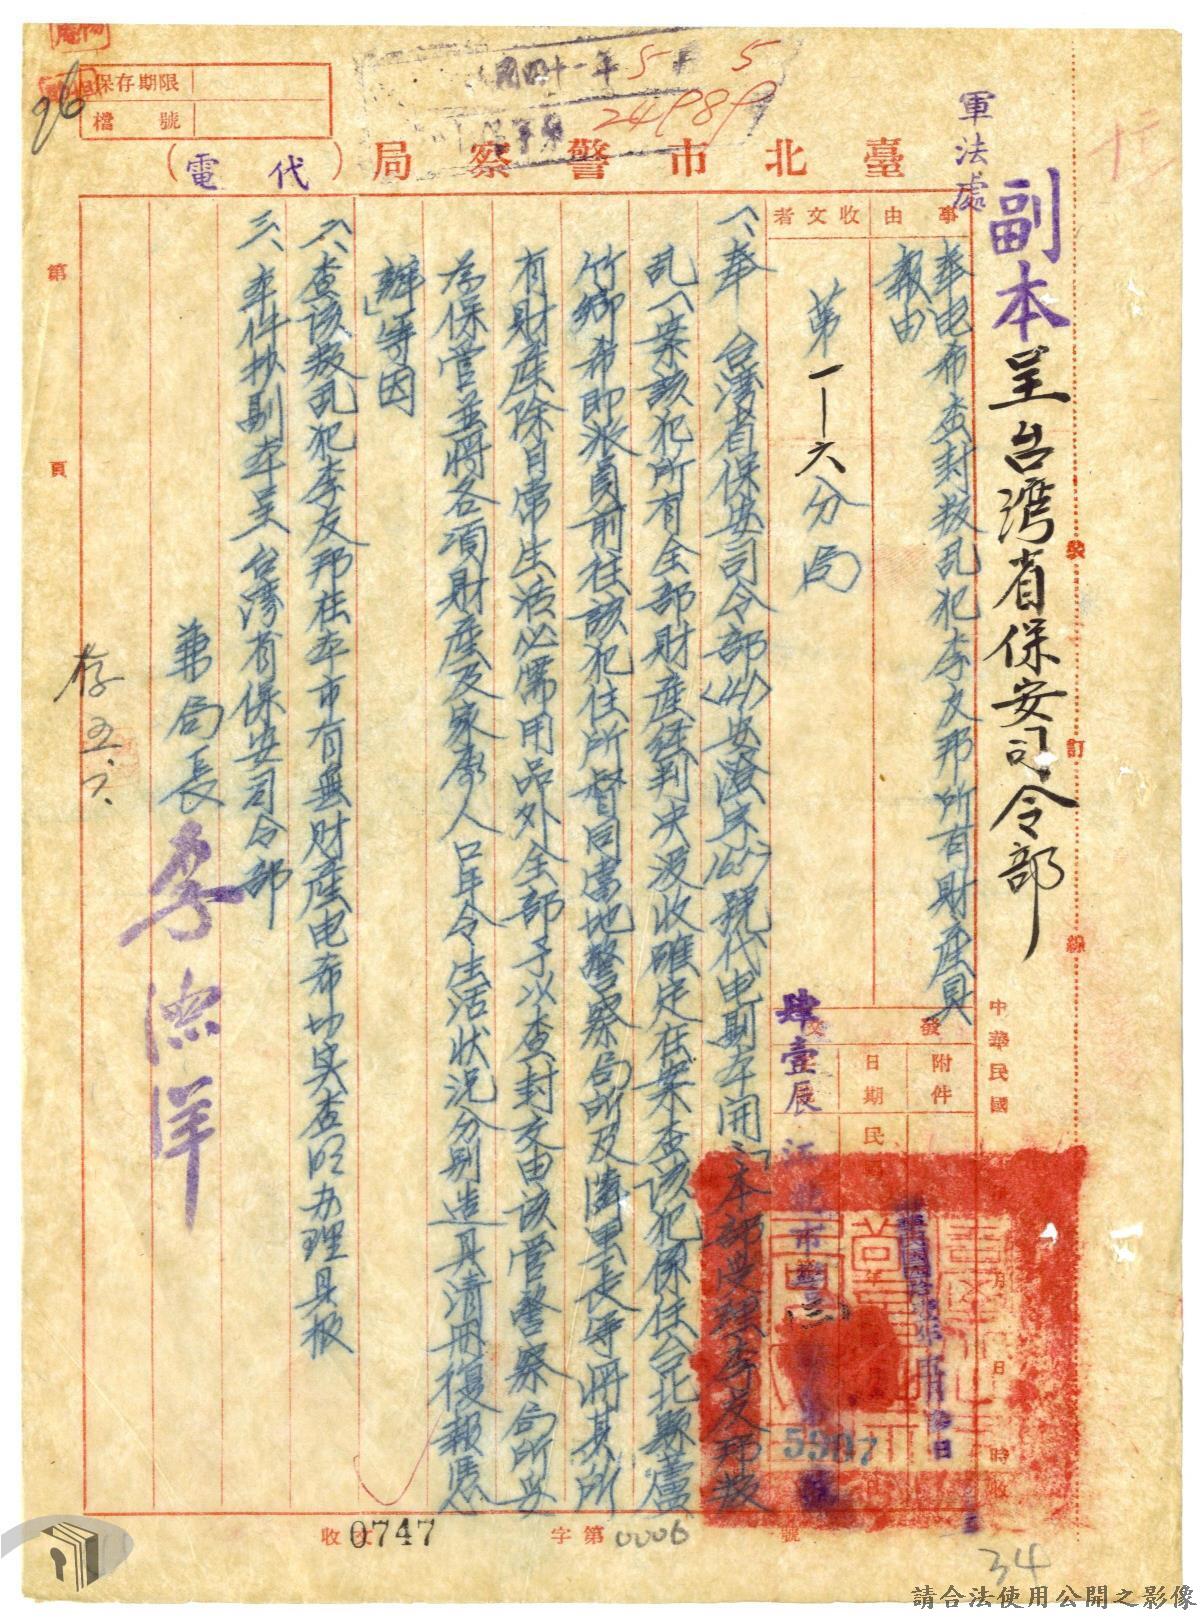 副本呈台湾省保安司令部
軍法處
保存期限
檔號
民國四十一年5月5
24989
96
臺北市警察局(代電)
事由
奉电希查封叛乱犯李友邦所有財產具
報由
收文者
第一—六分局
發文
附件
日期
中華民國
年月日時
肆壹辰江北市警三
5507
號
一、奉 台湾省保安司令部(41)安澄字1657號代电副本開「本部受理李友邦叛
乱一案該犯所有全部財產経判决没收確定在案查該犯係住台北縣蘆
竹鄉希即派員前往該犯住所督同當地警察局所及閭里長等將其所
有財產除日常生活必需用品外全部予以查封交由該管警察局所妥
為保管並將各項財產及家屬人口年令生活狀况分别造具清册復報憑
辦」等因
二、查該叛乱犯李友邦在本市有無財產电希切实查明办理具报
三、本件抄副本呈台湾省保安司令部
兼局長李德洋
存 五、六、
第 頁
裝 訂 線
收文0747
字第0006
34
請合法使用公開之影像